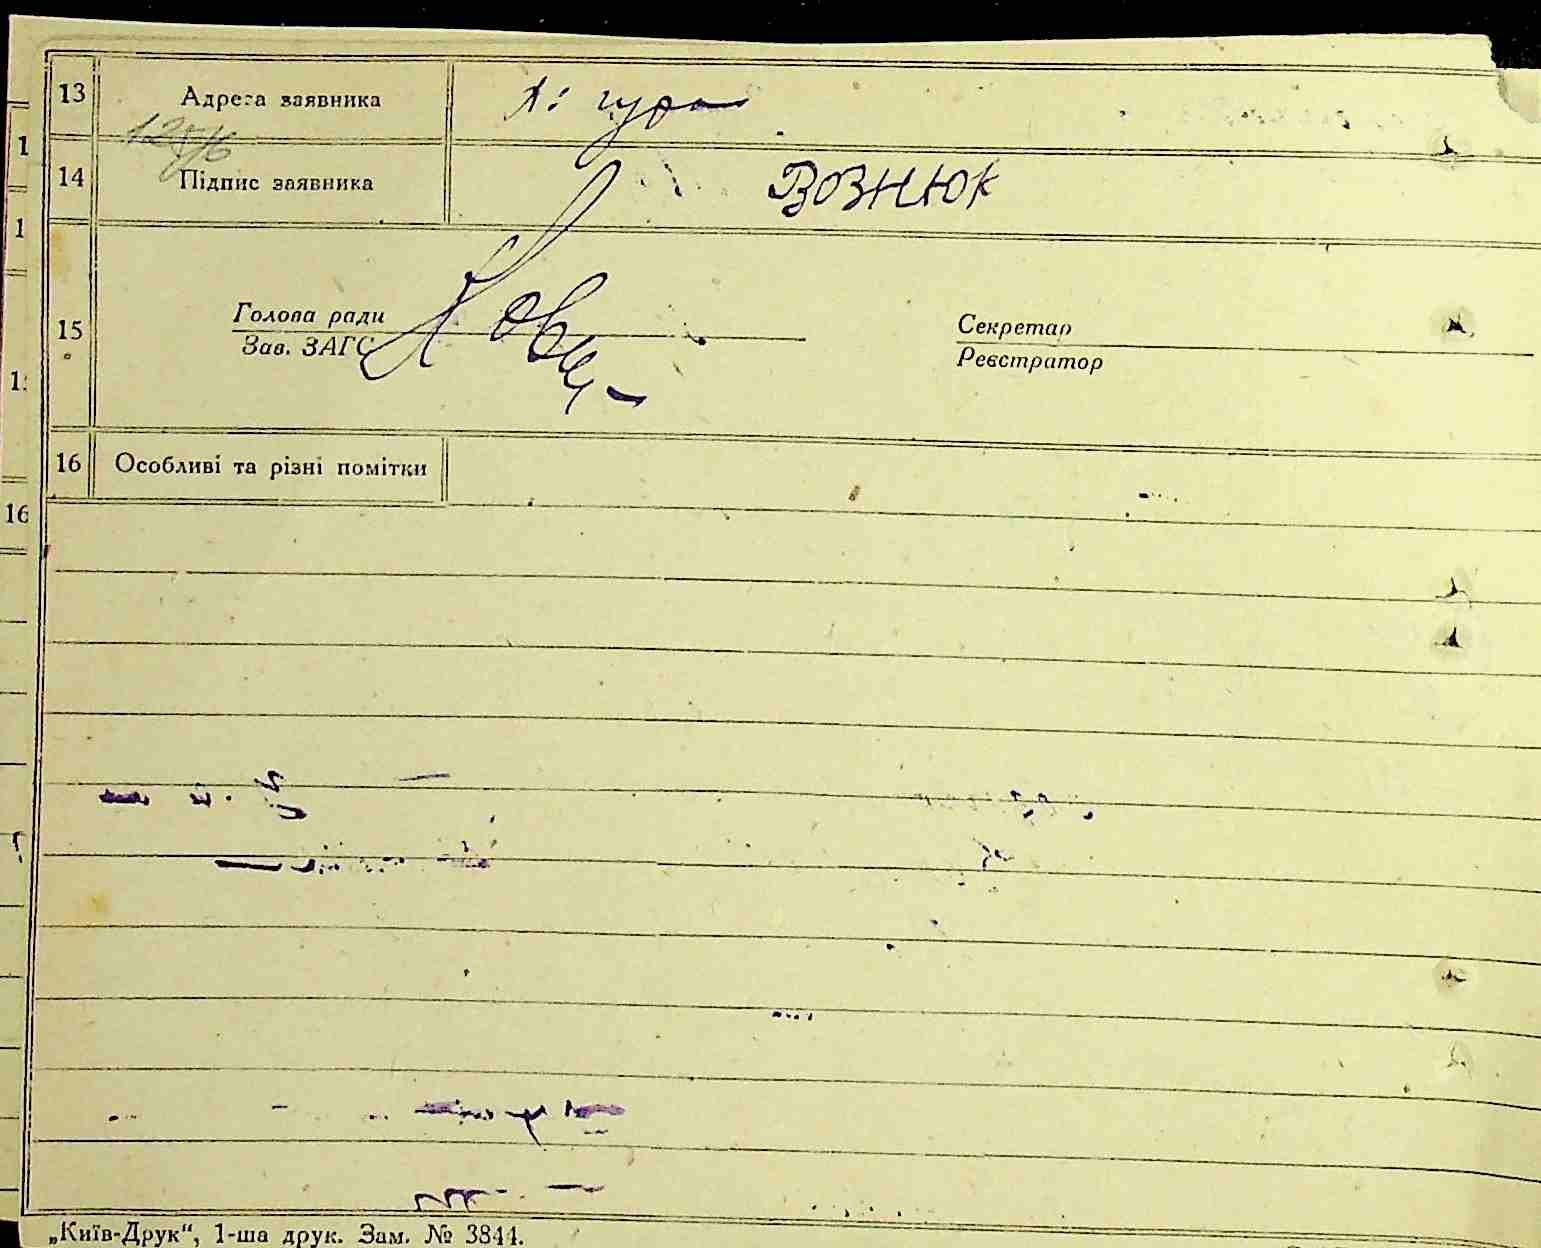 13 Адреса заявника
14 Підпис заявника Вознюк
15 Голова ради
Зав. ЗАГС
Секретар
Реєстратор
16 Особливі та різні помітки
„Київ-Друк“, 1-ша друк. Зам. № 3844.